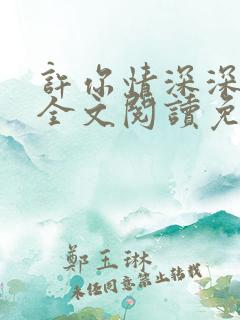 許你情深深
全文閱讀免
鄭玉琳
未经同意禁止转载